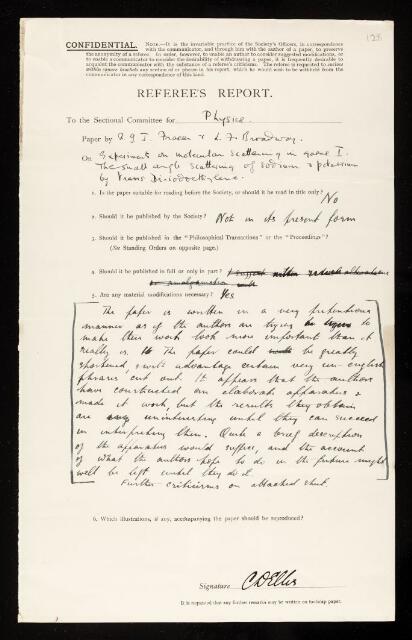 128
CONFIDENTIAL. NOTE.—It is the invariable practice of the Society's Officers, in correspondence
with the communicator, and through him with the author of a paper, to preserve
the anonymity of a referee. In order, however, to enable an author to consider suggested modifications, or
to enable a communicator to consider the desirability of withdrawing a paper, it is frequently desirable to
acquaint the communicator with the substance of a referee's criticisms. The referee is requested to enclose
within square brackets any sentence or phrase in his report, which he would wish to be withheld from the
communicator in any correspondence of this kind.
REFEREE'S REPORT.
To the Sectional Committee for Physics
Paper by R G J. Fraser & L. F. Broadway.
On Experiments on molecular scattering in gases I.
The small angle scattering of sodium & potassium
by trans Diiodoethylene.
1. Is the paper suitable for reading before the Society, or should it be read in title only? No
2. Should it be published by the Society? Not in its present form
3. Should it be published in the "Philosophical Transactions" or the "Proceedings"?
(See Standing Orders on opposite page.)
4. Should it be published in full or only in part? I suggest either
or amalgamation with
5. Are any material modifications necessary? Yes
[The paper is written in a very pretentious
manner as if the authors are trying to
make their work look more important than it
really is. The paper could be greatly
shortened & with advantage certain very un-english
phrases cut out. It appears that the authors
have constructed an elaborate apparatus &
made it work, but the results they obtain
are uninteresting until they can succeed
in interpreting them. Quite a brief description
of the apparatus would suffice, and the account
of what the authors hope to do in the future might
well be left until they do it.]
Further criticisms on attached sheet.
6. Which illustrations, if any, accompanying the paper should be reproduced?
Signature C D Ellis
It is requested that any further remarks may be written on foolscap paper.